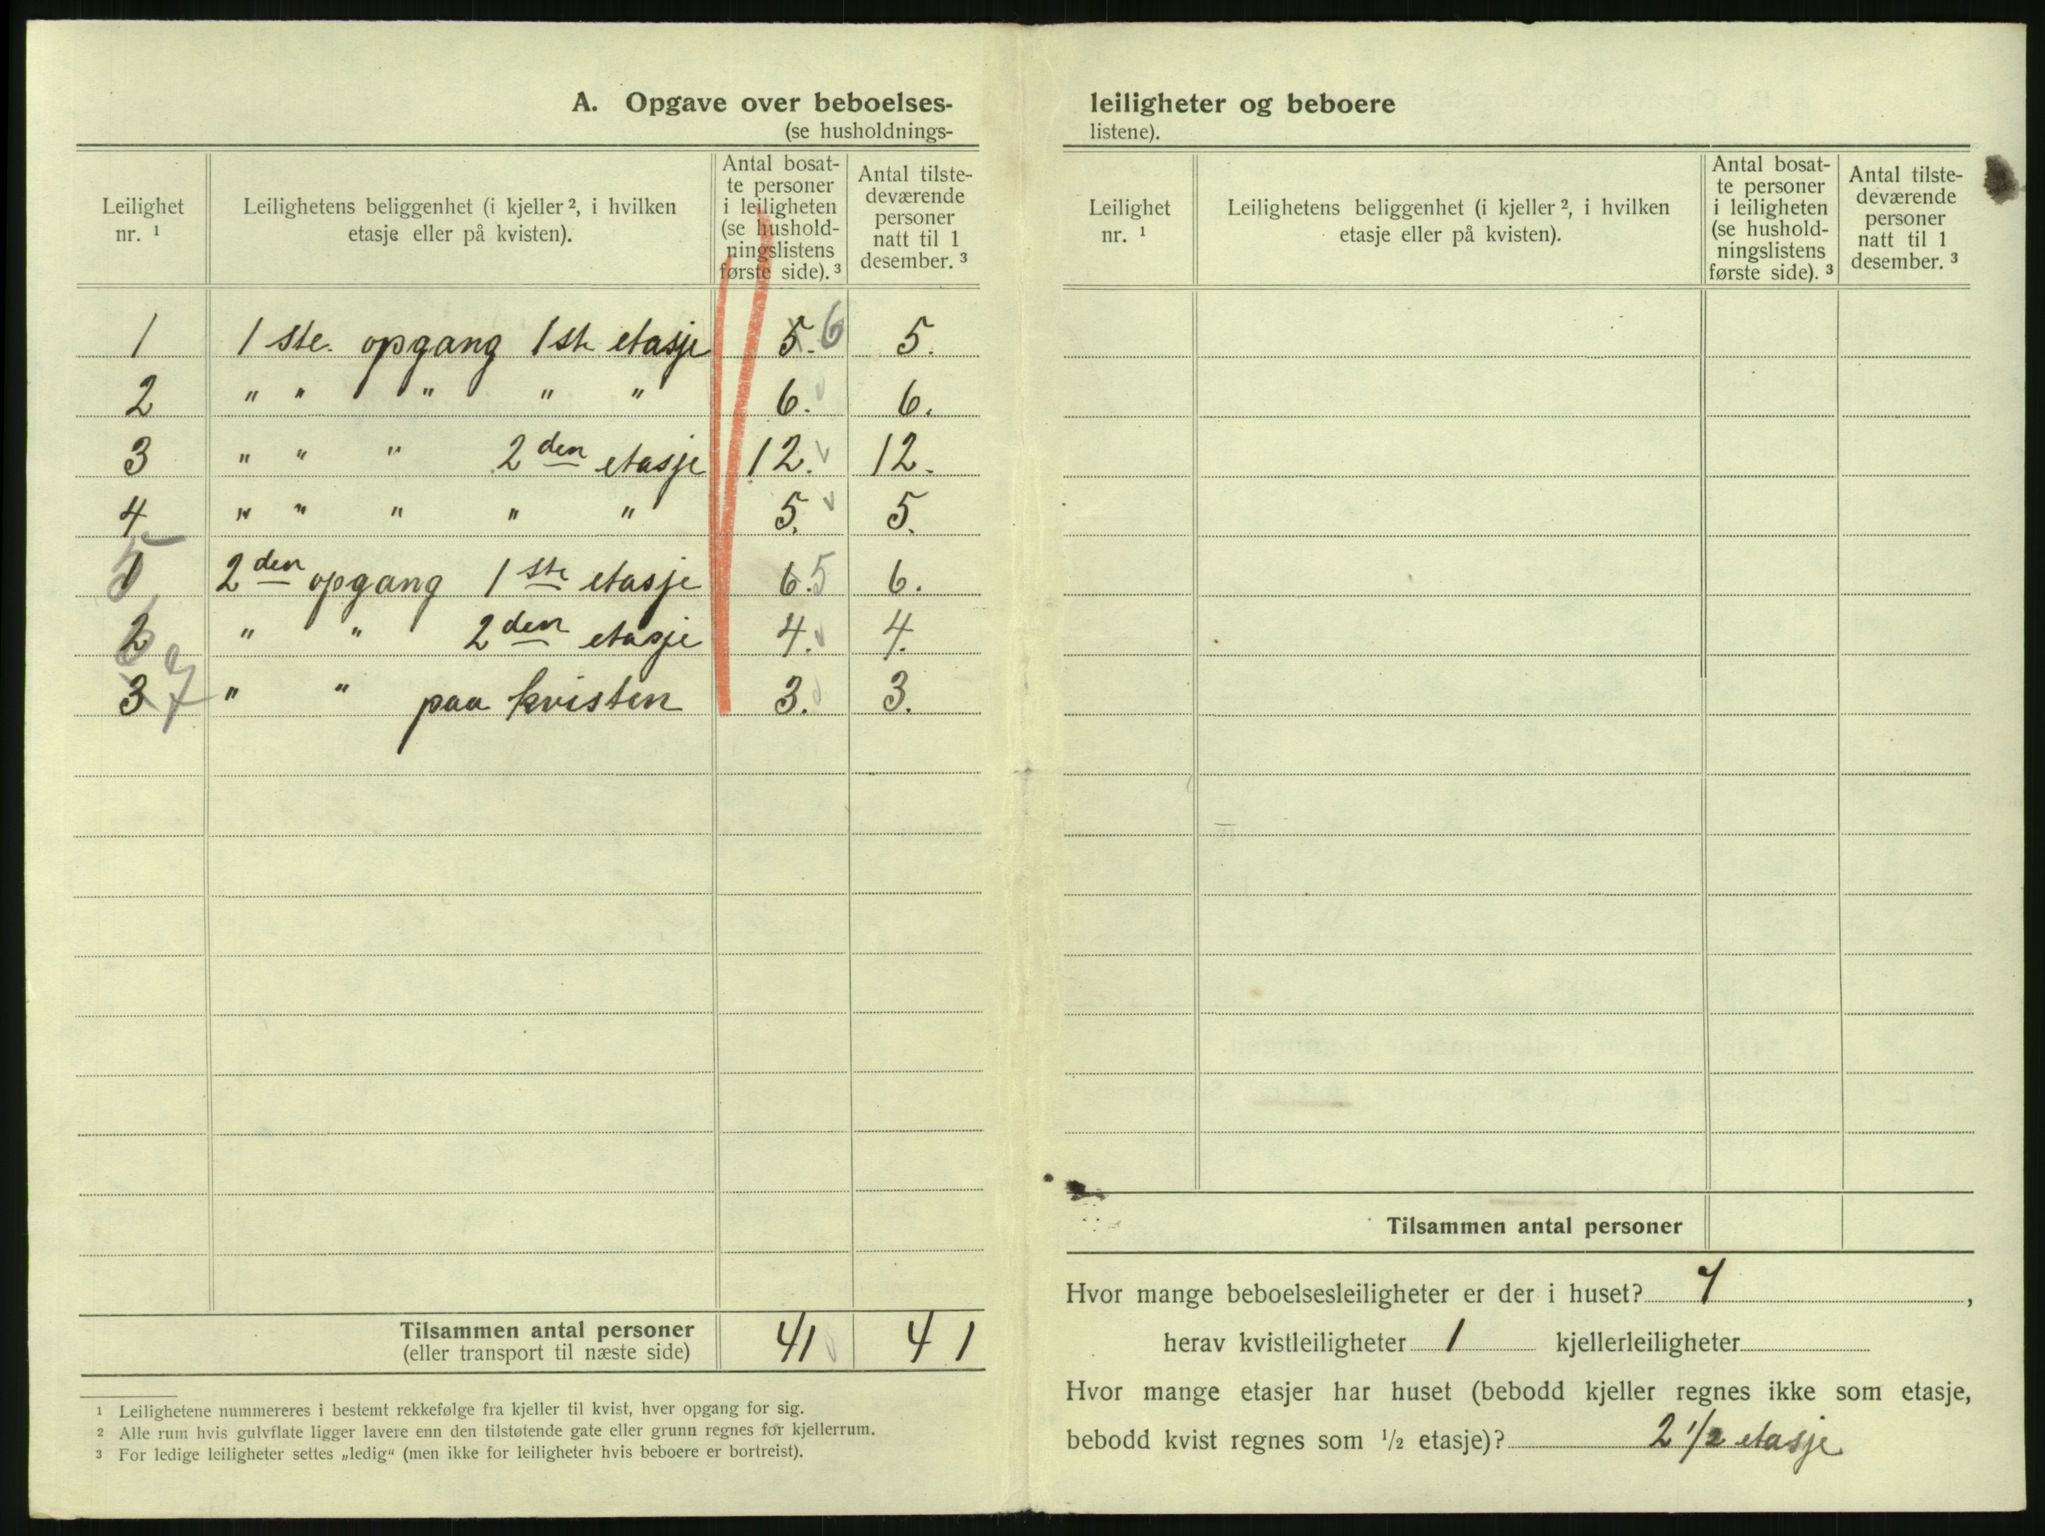 A. Opgave over beboelses-
(se husholdnings-
Leilighet nr. ¹
Leilighetens beliggenhet (i kjeller ², i hvilken
etasje eller på kvisten).
Antal bosat-
te personer
i leiligheten
(se hushold-
ningslistens
første side). ³
Antal tilste-
deværende
personer
natt til 1
desember. ³
1 1 ste. opgang 1ste etasje 5. 6 5.
2 " " " " " 6. 6.
3 " " " 2 den etasje 12. 12.
4 " " " " " 5. 5.
1 5 2 den opgang 1 ste etasje 6. 5 6.
2 6 " " 2 den etasje 4. 4.
3 7 " " paa kvisten 3. 3.
Tilsammen antal personer 41 41
(eller transport til næste side)
¹ Leilighetene nummereres i bestemt rekkefølge fra kjeller til kvist, hver opgang for sig.
² Alle rum hvis gulvflate ligger lavere enn den tilstøtende gate eller grunn regnes før kjellerrum.
³ For ledige leiligheter settes „ledig“ (men ikke for leiligheter hvis beboere er bortreist).
leiligheter og beboere
listene).
Leilighet nr. ¹
Leilighetens beliggenhet (i kjeller ², i hvilken
etasje eller på kvisten).
Antal bosat-
te personer
i leiligheten
(se hushold-
ningslistens
første side). ³
Antal tilste-
deværende
personer
natt til 1
desember. ³
Tilsammen antal personer
Hvor mange beboelsesleiligheter er der i huset? 7,
herav kvistleiligheter 1 kjellerleiligheter
Hvor mange etasjer har huset (bebodd kjeller regnes ikke som etasje,
bebodd kvist regnes som 1/2 etasje)? 2 1/2 etasje